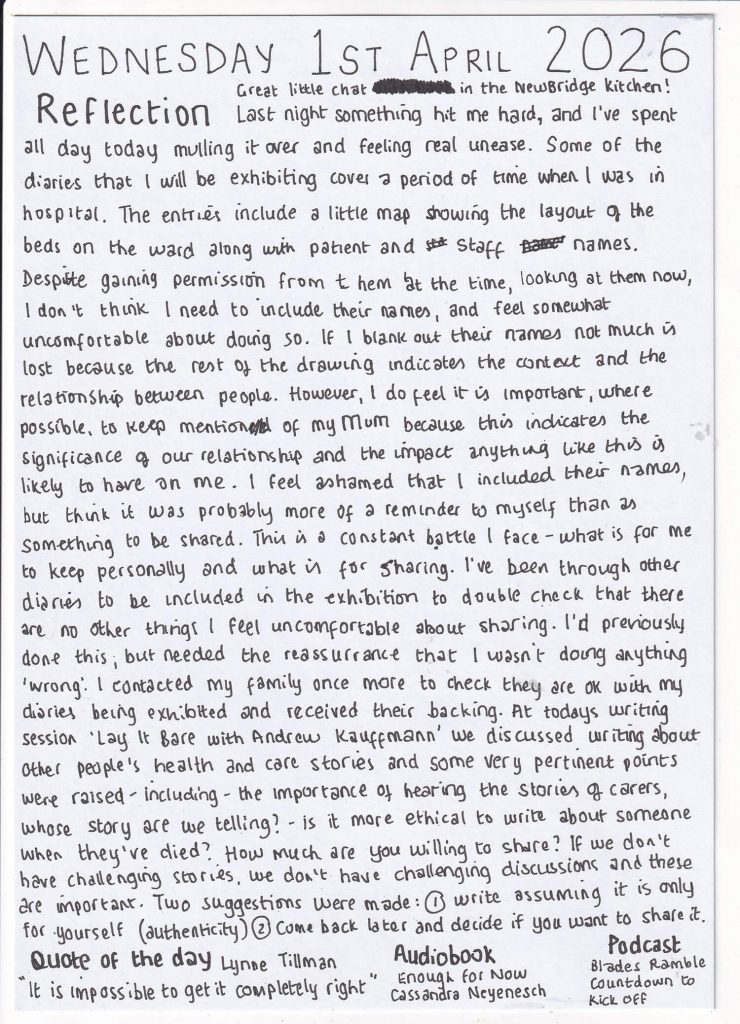 WEDNESDAY 1ST APRIL 2026
Great little chat in the NewBridge Kitchen!
Reflection Last night something hit me hard, and I've spent
all day today mulling it over and feeling real unease. Some of the
diaries that I will be exhibiting cover a period of time when I was in
hospital. The entries include a little map showing the layout of the
beds on the ward along with patient and staff names.
Despite gaining permission from them at the time, looking at them now,
I don't think I need to include their names, and feel somewhat
uncomfortable about doing so. If I blank out their names not much is
lost because the rest of the drawing indicates the context and the
relationship between people. However, I do feel it is important, where
possible, to keep mention of my Mum because this indicates the
significance of our relationship and the impact anything like this is
likely to have on me. I feel ashamed that I included their names,
but think it was probably more of a reminder to myself than as
something to be shared. This is a constant battle I face - what is for me
to keep personally and what is for sharing. I've been through other
diaries to be included in the exhibition to double check that there
are no other things I feel uncomfortable about sharing. I'd previously
done this, but needed the reassurrance that I wasn't doing anything
'wrong'. I contacted my family once more to check they are ok with my
diaries being exhibited and received their backing. At todays writing
session 'Lay It Bare with Andrew Kauffmann' we discussed writing about
other people's health and care stories and some very pertinent points
were raised - including - the importance of hearing the stories of carers,
whose story are we telling? - is it more ethical to write about someone
when they've died? How much are you willing to share? If we don't
have challenging stories, we don't have challenging discussions and these
are important. Two suggestions were made: ① write assuming it is only
for yourself (authenticity) ② Come back later and decide if you want to share it.
Quote of the day Lynne Tillman
"It is impossible to get it completely right"
Audiobook
Enough for Now
Cassandra Neyenesch
Podcast
Blades Ramble
Countdown to
Kick Off